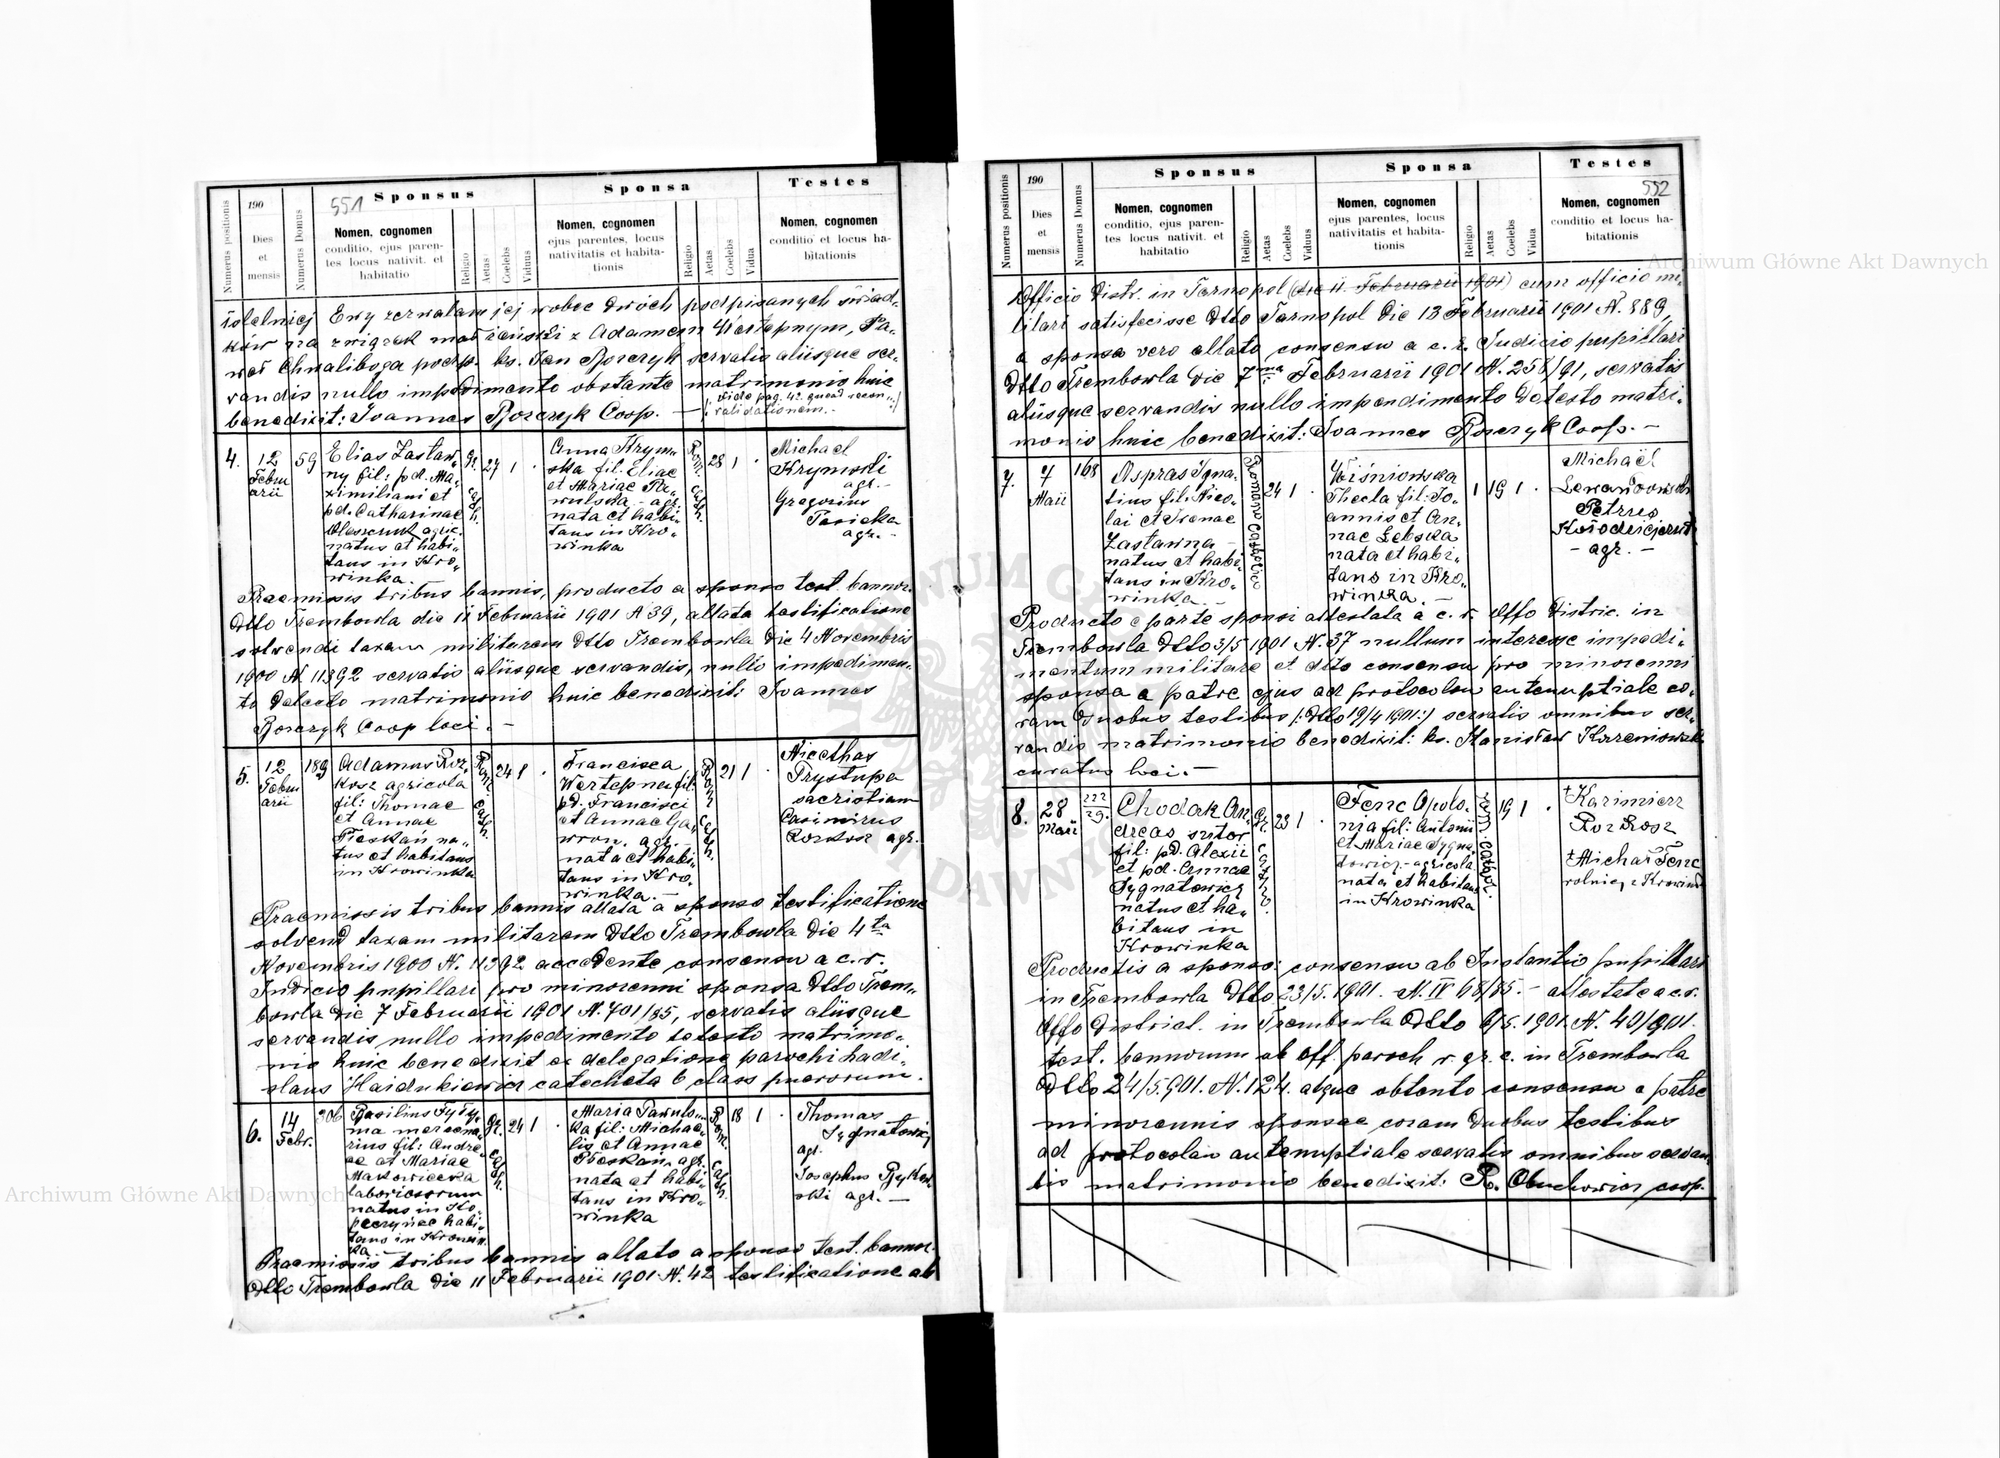 551
Sponsus
Sponsa
Testes
Numerus positionis
190
Dies
et
mensis
Numerus Domus
Nomen, cognomen
conditio, ejus paren-
tes locus nativit. et
habitatio
Religio
Aetas
Coelebs
Viduus
Nomen, cognomen
ejus parentes, locus
nativitatis et habita-
tionis
Religio
Aetas
Coelebs
Vidua
Nomen, cognomen
conditio et locus ha-
bitationis
Ewy zezwalam jej wobec dwóch podpisanych świad-
ków na związek małżeński z Adamem
Chwaliboga podp. ks. Jan Borczyk servatis aliisque ser-
vandis nullo impedimento obstante matrimonio huic
benedixit: Joannes Borczyk Coop. —
vide pag. 42 quoad recon-
validationem.
4.
12
Febru
arii
59
Elias Zastaw-
ny fil: pd. Ma-
ximiliani et
pd. Catharinae
natus et habi-
tans in Kro-
winka.
Gr. cath.
27 1
Anna Krym-
ska fil. Eliae
et Mariae Pa-
wulska - agr.
nata et habi-
tans in Kro-
winka
Rom. cath.
28 1
Michael
Krymski
agr. -
Gregorius
agr. -
Praemissis tribus bannis, producto a sponso test. bannor.
dtto Trembowla die 11 Februarii 1901 N 39, allata testificatione
solvendi taxam militarem dtto Trembowla die 4 Novembris
1900 N. 11392 servatis aliisque servandis, nullo impedimen-
to detecto matrimonio huic benedixit: Joannes
Borczyk Coop loci. -
5.
12
Febru
arii
189
Adamus Roz-
kosz agricola
fil: Thomae
et Annae
Płoskoń na-
tus et habitans
in Krowinka
Rom. cath.
24 1
Francisca
Wertepna fil:
pd. Francisci
et Annae Ga-
wron. agr.
nata et habi-
tans in Kro-
winka.
Rom. cath.
21 1
Nicethas
Prystupa
sacristian
Casimirus
Rozkosz agr.
Praemissis tribus bannis allata a sponso testificatione
solvend taxam militarem dtto Trembowla die 4ta
Novembris 1900 N. 11392 accedente consensu a c. r.
Judicio pupillari pro minorenni sponsa dtto Trem-
bowla die 7 Februarii 1901 N. 701/85, servatis aliisque
servandis nullo impedimento detecto matrimo-
nio huic benedixit ex delegatione parochi Ladi-
slaus Hajdukiewicz catecheta 6 class puerorum.
6.
14
Febr.
306
Basilius Tyty-
ma merena-
rius fil: Andre-
ae et Mariae
Makowiecka
natus in Ko-
peczyńce habi-
tans in Krowin-
ka -
Gr. cath.
24 1
Maria Pawuls-
ka fil: Michae-
lis et Annae
Płoskoń. agr.
nata et habi-
tans in Kro-
winka
Rom. cath.
18 1
Thomas
Sygnatowicz
agr.
Josephus
agr. —
Praemissis tribus bannis allato a sponso test. bannor.
dtto Trembowla die 11 Februarii 1901 N. 42 testificatione ab
552
Sponsus
Sponsa
Testes
Numerus positionis
190
Dies
et
mensis
Numerus Domus
Nomen, cognomen
conditio, ejus paren-
tes locus nativit. et
habitatio
Religio
Aetas
Coelebs
Viduus
Nomen, cognomen
ejus parentes, locus
nativitatis et habita-
tionis
Religio
Aetas
Coelebs
Vidua
Nomen, cognomen
conditio et locus ha-
bitationis
Officio Distr. in Tarnopol (die 11. Februarii 1901) cum officio mi-
litari satisfecisse dtto Tarnopol die 13 Februarii 1901 N. 889,
a sponsa vero allato consensu a c. r. Judicio pupillari
dtto Trembowla die 7ma Februarii 1901 N. 258/91, servatis
aliisque servandis nullo impendimento detecto matri-
monio huic benedixit: Joannes Borczyk Coop. -
7.
7
Maii
168
Aspras Igna-
tius fil: Nico-
lai et Irenae
Zastawna -
natus et habi-
tans in Kro-
winka -
Romano catholico
24 1
Wiśniowska
Thecla fil: Jo-
annis et An-
nae Łebska
nata et habi-
tans in Kro-
winka. -
1 19 1
Michaël
Lewandowski
Petrus
Kołodziejczuk
- agr. -
Producto e parte sponsi attestata a c. r. Offo Distric. in
Trembowla dtto 3/5 1901 N. 37 nullum interesse impedi-
mentum militare et dtto consensu pro minorenni
sponsa a patre ejus ad protocolon antenuptiale co-
ram duobus testibus /: dtto 19/4 1901:/ servatis omnibus ser-
vandis matrimonio benedixit: ks. Stanisław Korzeniowski
curatus loci. -
8.
28
Maii
222/29.
Chodak An-
dreas sutor
fil: pd. Alexii
et pd. Annae
Sygnatowicz
natus et ha-
bitans in
Krowinka
23 1
Fenc Apolo-
nia fil: Antonii
et Mariae Sygna-
towicz - agricola
nata et habitans
in Krowinka
rom cathol.
19 1
+ Kazimierz
Rozkosz
+ Michał Fenc
rolnicy z Krowinki
Productis a sponso: consensu ab Instantia pupillari
in Trembowla dtto 23/5. 1901. N. IV 68/85. - attestate a c. r.
Offo District. in Trembowla dtto 6/5. 1901. N. 40/901.
test. bannorum ab off. paroch r. gr. c. in Trembowla
dtto 24/5. 901. N. 124. atque obtento consensu a patre
minorennis sponsae coram duobus testibus
ad protocolon antenuptiale servatis omnibus servan-
dis matrimonio benedixit: R. Obuchowicz coop.
Archiwum Główne Akt Dawnych
Archiwum Główne Akt Dawnych